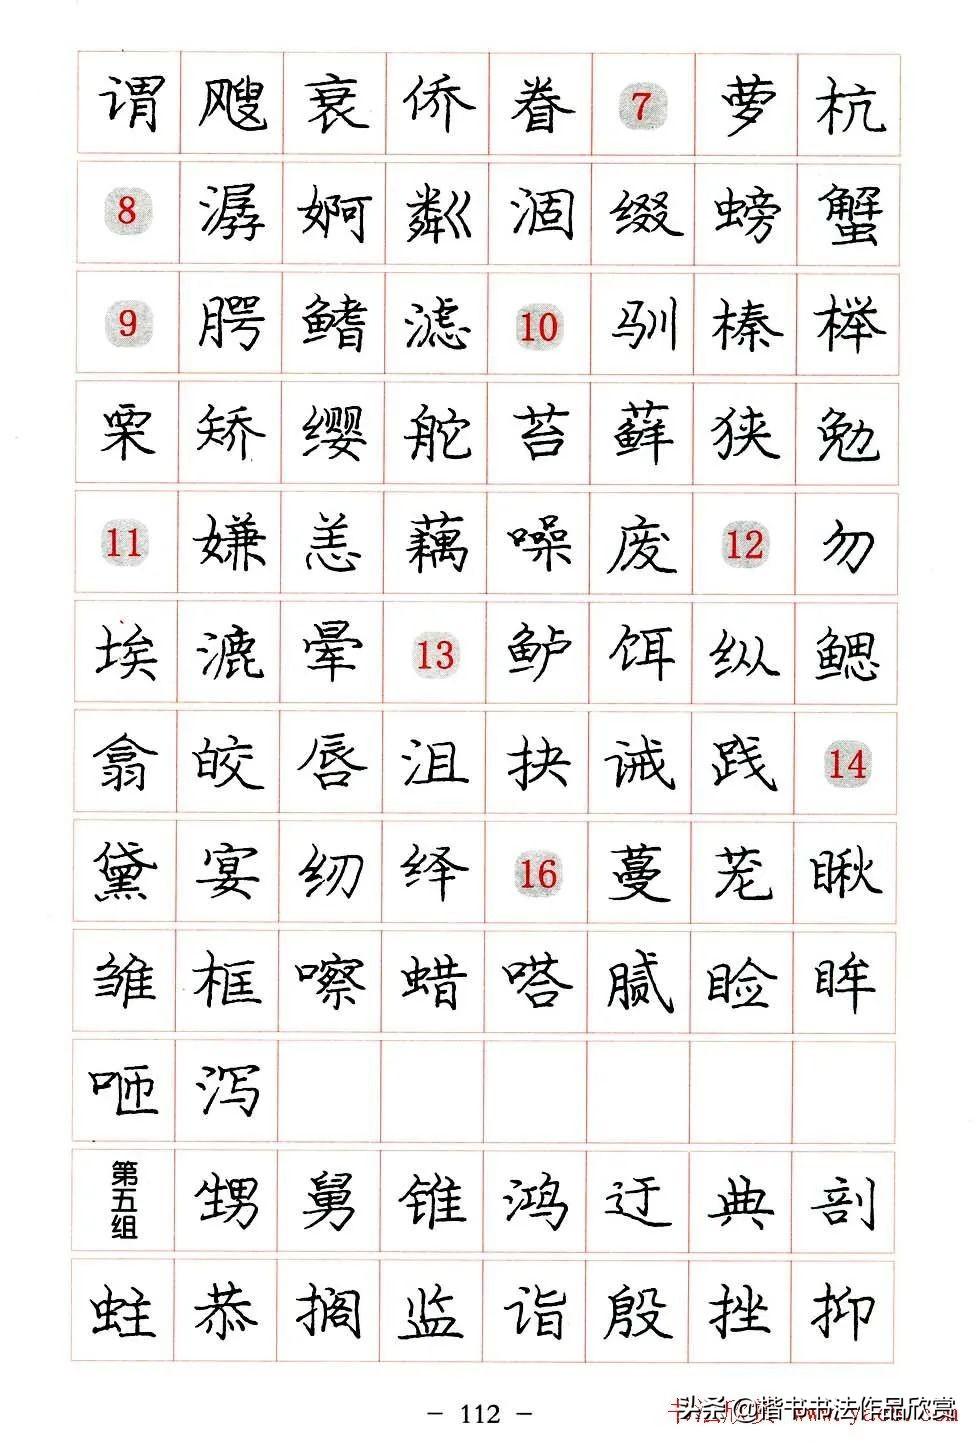 谓 飕 衰 侨 眷 7 萝 杭
8 潺 婀 粼 涸 缀 螃 蟹
9 腭 鳍 滤 10 驯 榛 榉
栗 矫 缨 舵 苔 藓 狭 勉
11 嫌 恙 藕 噪 废 12 勿
埃 漉 晕 13 鲈 饵 纵 鳃
翕 皎 唇 沮 抉 诫 践 14
黛 宴 纫 绎 16 蔓 茏 瞅
雏 框 嚓 蜡 嗒 腻 睑 眸
咂 泻
第五组 甥 舅 锥 鸿 迂 典 剖
蛀 恭 搁 监 诣 殷 挫 抑
- 112 -
头条@楷书书法作品欣赏